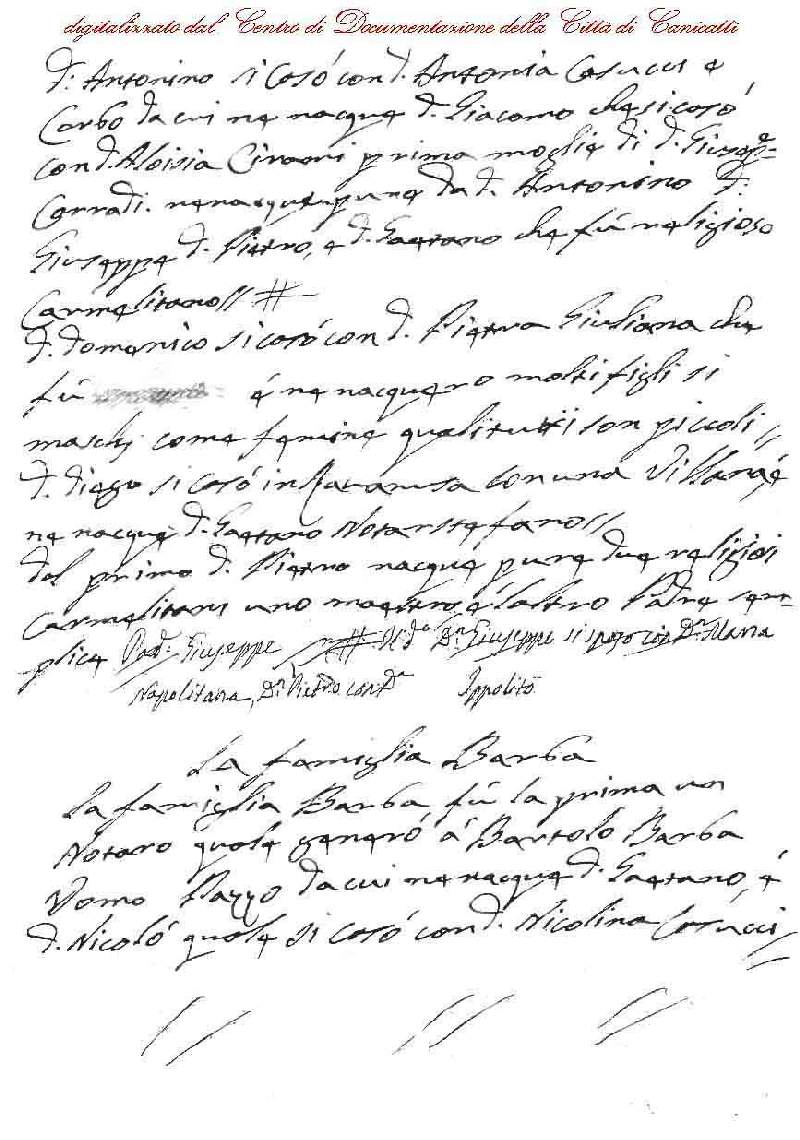 digitalizzato dal Centro di Documentazione della Città di Canicattì
d. Antonino si casò con d. Antonia Casucci e
Corbo da cui ne nacque d. Giacomo che si casò
con d. Aloisia Cirami prima moglie di d. Giusepe
Corradi. ne nacque pure da d. Antonino d.
Giuseppe d. Pietro, e d. Gaetano che fù religioso
Carmelitano// #
d. domenico si casò con d. Pietra Giuliana che
fù é ne nacquero molti figli si
maschj come femine quali tutti son piccoli //
d. diego si casò in Ravanusa con una Villana, é
ne nacque d. Gaetano Notarstefano //
dal primo d. Pietro nacque pure due religiosi
Carmelitani uno maestro é l'altro Padre sem
plice Pad: Giuseppe # Il dº Dn Giuseppe si sposò con Dª Maria
Napolitana, Dn Pietro con Dª Ippolito
La famiglia Barba
La famiglia Barba fù la prima un
Notaro quale generó á Bartolo Barba
Uomo Pazzo da cui ne nacque d. Gaetano, é
d. Nicoló quale si casó con d. Nicolina Casucci //